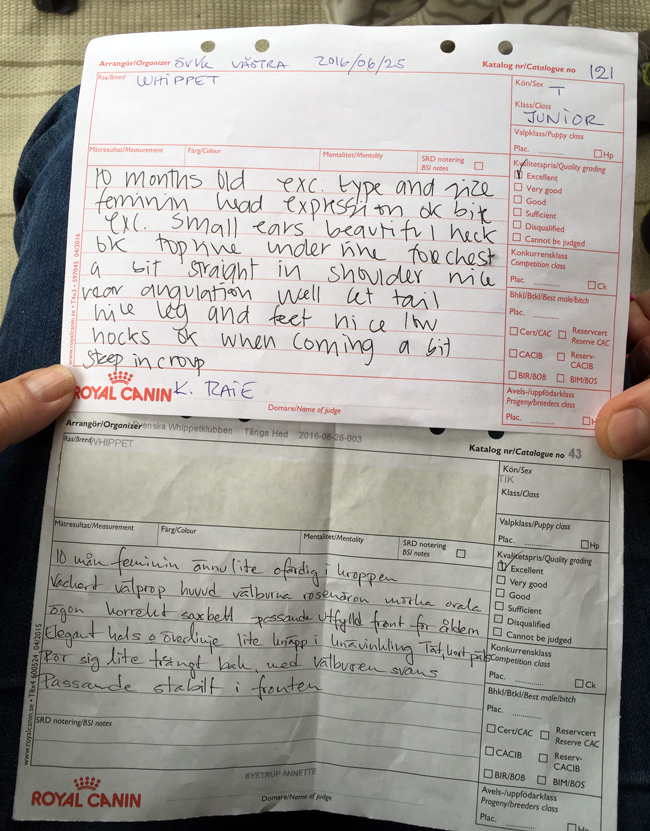 Arrangör/Organizer SVVK VÄSTRA 2016/06/25 Katalog nr/Catalogue no 121
Ras/Breed WHIPPET
Kön/Sex T
Klass/Class JUNIOR
Valpklass/Puppy class
Plac. ............ Hp
Matresultat/Measurement Färg/Colour Mentalitet/Mentality SRD notering BSI notes
Kvalitetspris/Quality grading
Excellent
Very good
Good
Sufficient
Disqualified
Cannot be judged
Konkurrensklass
Competition class
Plac. ............ Ck
Bhkl/Btkl/Best male/bitch
Plac. ............
Cert/CAC Reservcert Reserve CAC
CACIB Reserv-CACIB
BIR/BOB BIM/BOS
Avels-/uppfödarklass
Progeny/breeders class
Plac. ............
10 months old exc. type and size
feminin head expression ok bite
exc. small ears beautiful neck
ok topline underline forechest
a bit straight in shoulder nice
rear angulation well set tail
nice leg and feet nice low
hocks ok when coming a bit
steep in croup
www.royalcanin.se • T4x3 • 597045 04/2016
ROYAL CANIN K. RAIE
Domare/Name of judge
Arrangör/Organizer Svenska Whippetklubben Tånga Hed 2016-06-26-003 Katalog nr/Catalogue no 43
Ras/Breed WHIPPET
Kön/Sex
TIK
Klass/Class
Valpklass/Puppy class
Plac. ............ Hp
Matresultat/Measurement Färg/Colour Mentalitet/Mentality SRD notering BSI notes
Kvalitetspris/Quality grading
Excellent
Very good
Good
Sufficient
Disqualified
Cannot be judged
Konkurrensklass
Competition class
Plac. ............ Ck
Bhkl/Btkl/Best male/bitch
Plac. ............
Cert/CAC Reservcert Reserve CAC
CACIB Reserv-CACIB
BIR/BOB BIM/BOS
Avels-/uppfödarklass
Progeny/breeders class
Plac. ............
10 mån feminin ännu lite ofärdig i kroppen
Vackert välprop huvud välburna rosenöron mörka ovala
ögon korrekt saxbett passande utfylld front för åldern
Elegant hals o överlinje lite knapp i knävinkling Tät, kort päls
Rör sig lite trångt bak, med välburen svans
Passande stabilt i fronten
SRD notering/BSI notes
www.royalcanin.se • T8x4 600524_04/2015
BYSTRUP ANNETTE
ROYAL CANIN
Domare/Name of judge